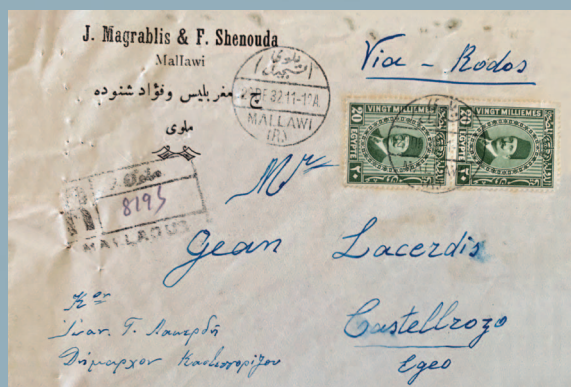 J. Magrablis & F. Shenouda
Mallawi
ج. مغربليس وفؤاد شنوده
ملوى
MALLAWI
(R.)
Via - Rodos
VINGT MILLIEMES
20
EGYPTE
VINGT MILLIEMES
20
8195
Mr
Gean Lacerdis
Castellrozo
Egeo
Κον
Ιωαν. Γ. Λακερδή
Δήμαρχον Καστελορίζου